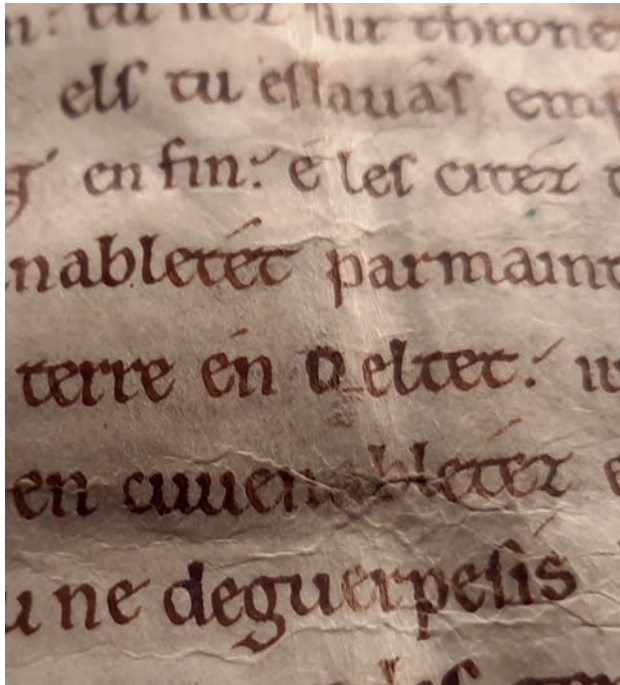 tu sur throne
els tu eslauás
en fin: é les citez
nabletét parmaint
terre en oeltet:
en cuuenabletet
ne deguerpesis